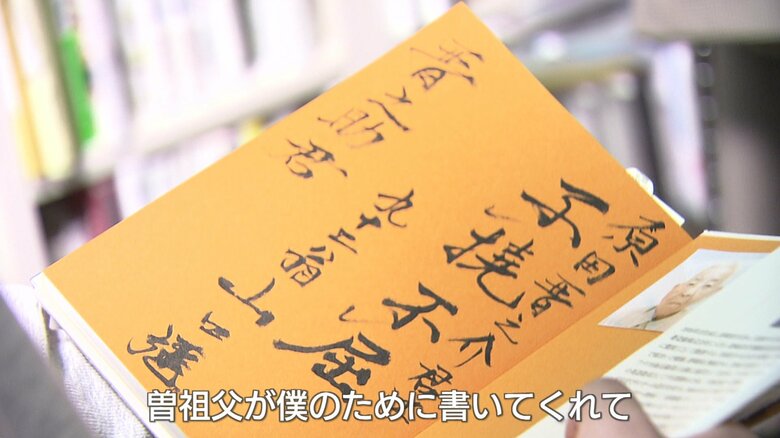 原田晋之介君
不撓不屈
九十二翁
山口
晋之助君
曽祖父が僕のために書いてくれて